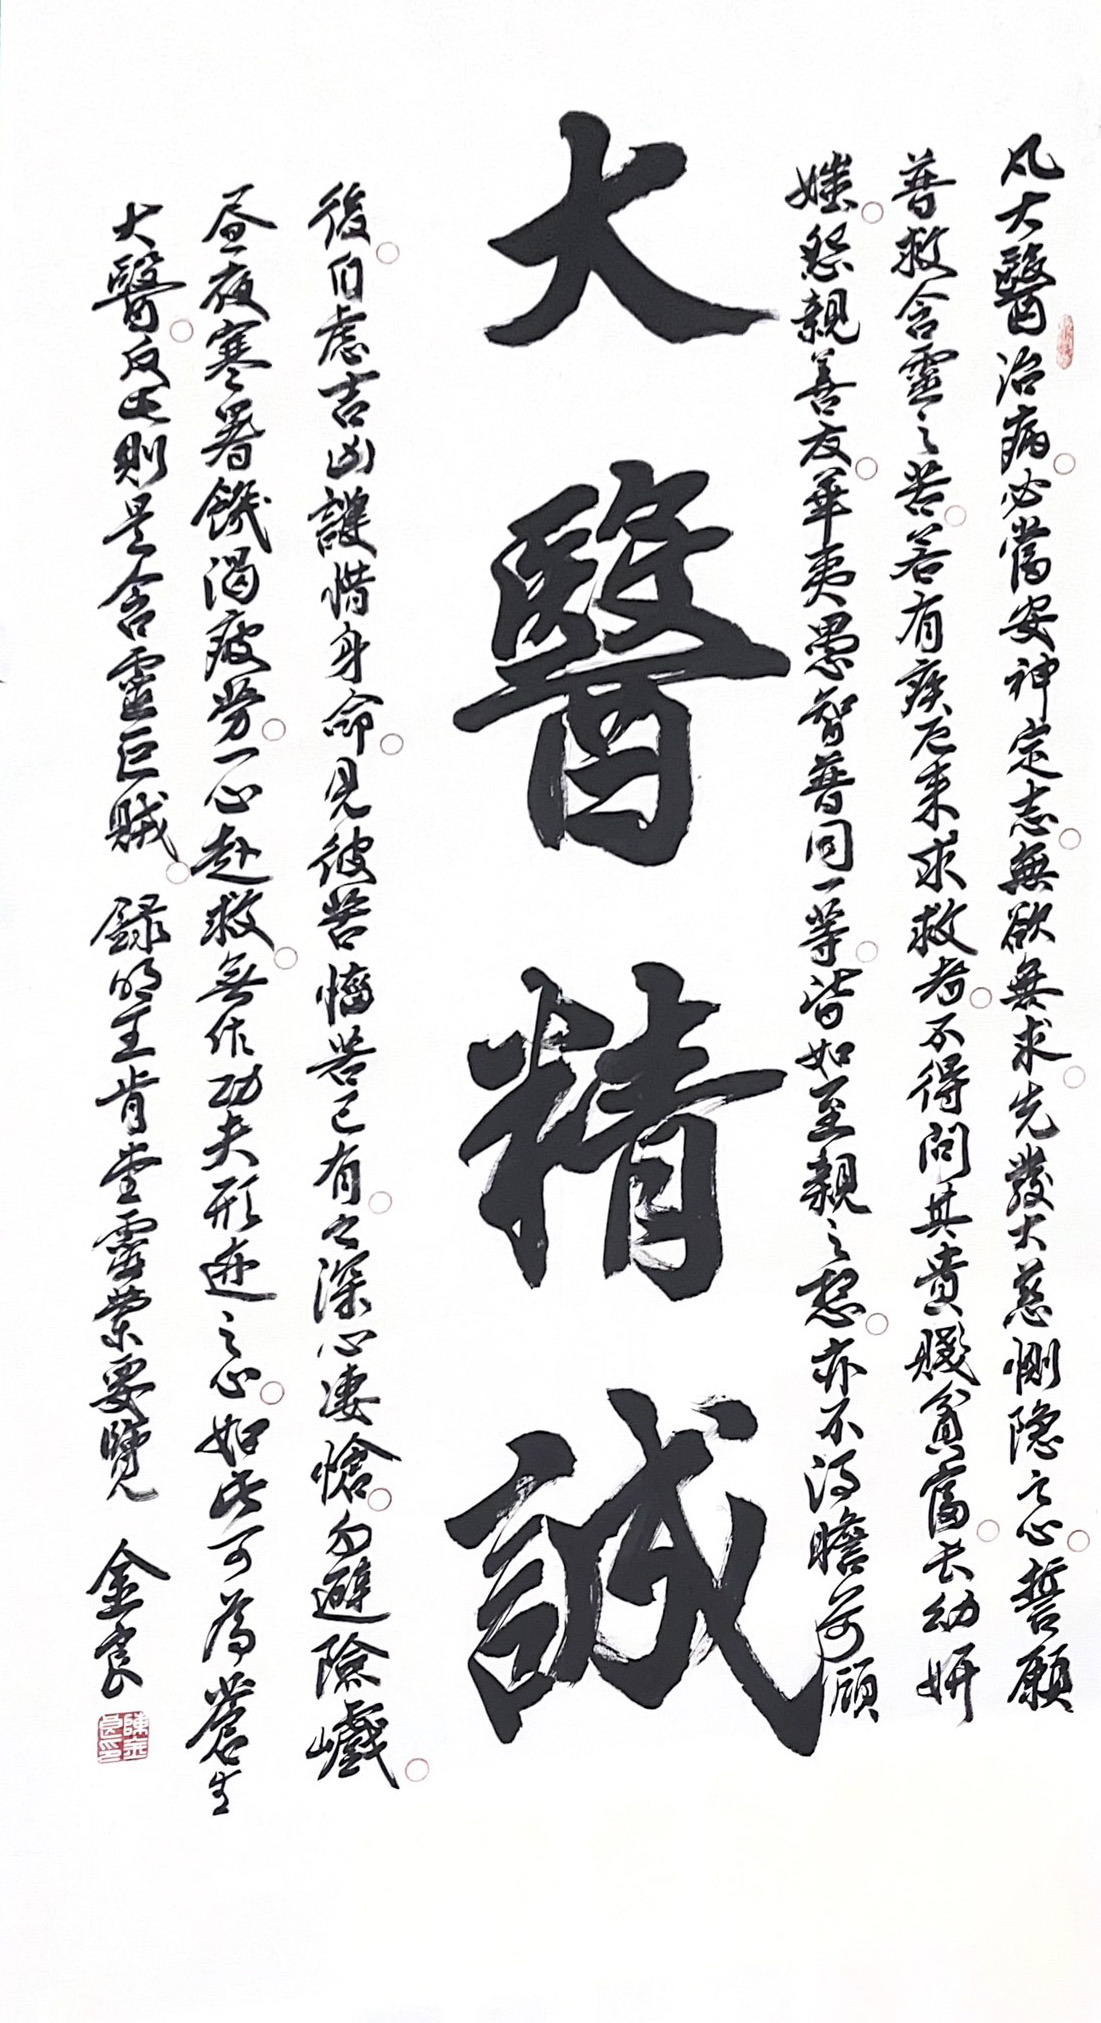 凡大醫治病必當安神定志無欲無求先發大慈惻隐之心誓願
普救含靈之苦若有疾厄来求救者不得問其貴賤貧富长幼妍
媸怨親善友華夷愚智普同一等皆如至親之想亦不得瞻前顾
大醫精誠
後自慮吉凶護惜身命見彼苦惱若己有之深心凄愴勿避險巇
昼夜寒暑饑渴疲劳一心赴救無作功夫形迹之心如此可為蒼生
大醫反此則是含靈巨賊 録明王肯堂靈蘭要覽 金良
陳金良印